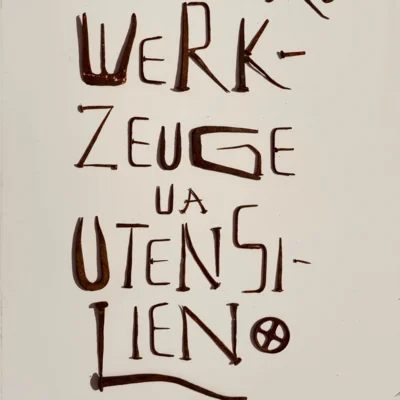 WERK-
ZEUGE
UA
UTENSI-
LIEN